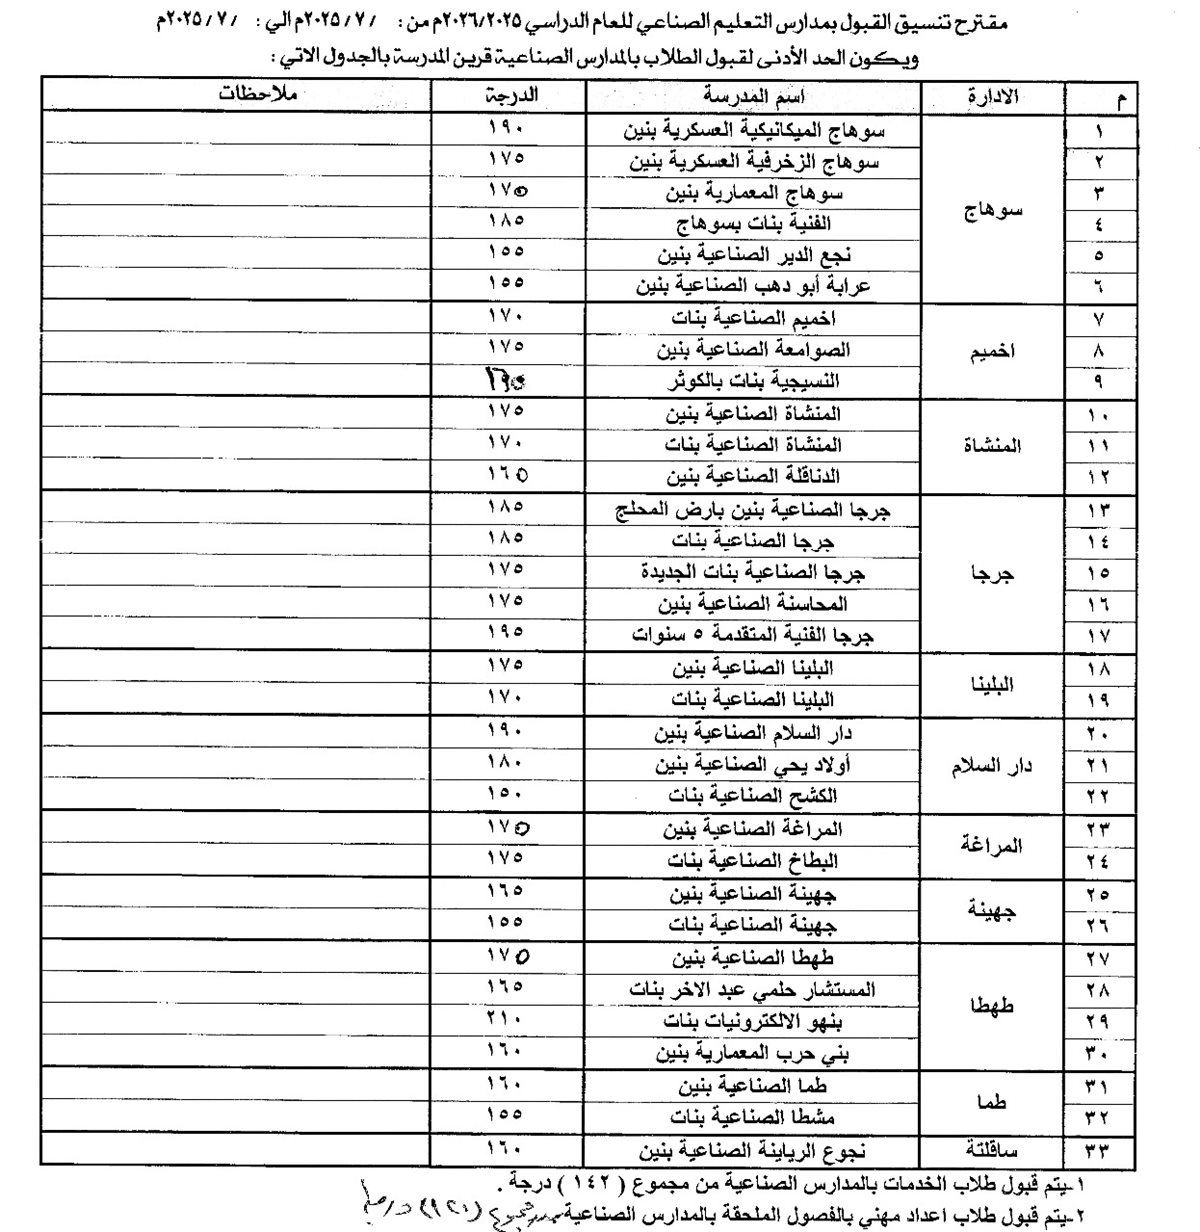 مقترح تنسيق القبول بمدارس التعليم الصناعي للعام الدراسي ٢٠٢٦/٢٠٢٥م من : / ٧ /٢٠٢٥م الي : / ٧ /٢٠٢٥م
ويكون الحد الأدنى لقبول الطلاب بالمدارس الصناعية قرين المدرسة بالجدول الاتي :
م الادارة اسم المدرسة الدرجة ملاحظات
١ سوهاج سوهاج الميكانيكية العسكرية بنين ١٩٠
٢ سوهاج الزخرفية العسكرية بنين ١٧٥
٣ سوهاج المعمارية بنين ١٧٥
٤ الفنية بنات بسوهاج ١٨٥
٥ نجع الدير الصناعية بنين ١٥٥
٦ عرابة أبو دهب الصناعية بنين ١٥٥
٧ اخميم اخميم الصناعية بنات ١٧٠
٨ الصوامعة الصناعية بنين ١٧٥
٩ النسيجية بنات بالكوثر
١٠ المنشاة المنشاة الصناعية بنين ١٧٥
١١ المنشاة الصناعية بنات ١٧٠
١٢ الدناقلة الصناعية بنين ١٦٥
١٣ جرجا جرجا الصناعية بنين بارض المحلج ١٨٥
١٤ جرجا الصناعية بنات ١٨٥
١٥ جرجا الصناعية بنات الجديدة ١٧٥
١٦ المحاسنة الصناعية بنين ١٧٥
١٧ جرجا الفنية المتقدمة ٥ سنوات ١٩٥
١٨ البلينا البلينا الصناعية بنين ١٧٥
١٩ البلينا الصناعية بنات ١٧٠
٢٠ دار السلام دار السلام الصناعية بنين ١٩٠
٢١ أولاد يحي الصناعية بنين ١٨٠
٢٢ الكشح الصناعية بنات ١٥٠
٢٣ المراغة المراغة الصناعية بنين ١٧٥
٢٤ البطاخ الصناعية بنات ١٧٥
٢٥ جهينة جهينة الصناعية بنين ١٦٥
٢٦ جهينة الصناعية بنات ١٥٥
٢٧ طهطا طهطا الصناعية بنين ١٧٥
٢٨ المستشار حلمي عبد الاخر بنات ١٦٥
٢٩ بنهو الالكترونيات بنات ٢١٠
٣٠ بني حرب المعمارية بنين ١٦٠
٣١ طما طما الصناعية بنين ١٦٠
٣٢ مشطا الصناعية بنات ١٥٥
٣٣ ساقلتة نجوع الرياينة الصناعية بنين ١٦٠
١-يتم قبول طلاب الخدمات بالمدارس الصناعية من مجموع ( ١٤٢ ) درجة .
٢-يتم قبول طلاب اعداد مهني بالفصول الملحقة بالمدارس الصناعية من مجموع (١٢٠) درجة